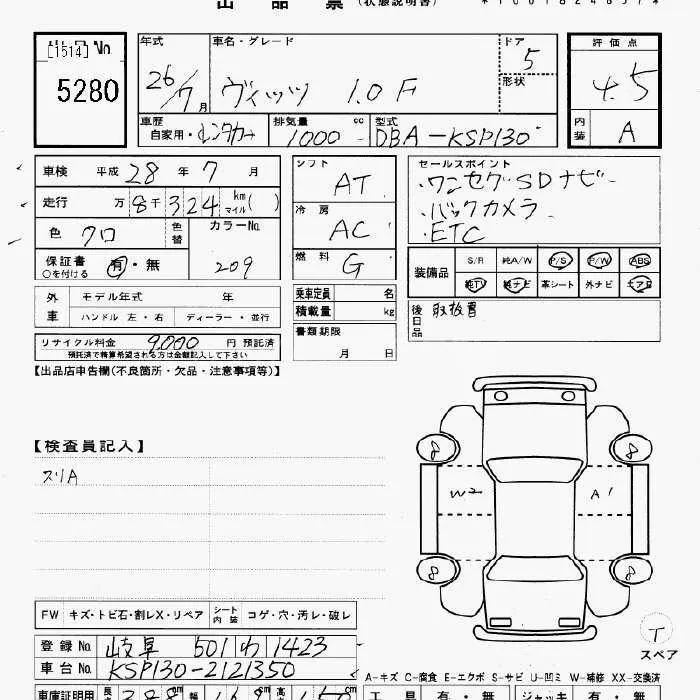 出品票 (状態説明書)
[1514] No
5280
年式 26/7月
車名・グレード ヴィッツ 1.0 F
ドア 5
形状
評価点 4.5
内装 A
車歴 自家用・レンタカー
排気量 cc 1000
型式 DBA-KSP130
車検 平成 28 年 7 月
走行 万 8 千 3 2 4 km マイル ( )
色 クロ 色替
カラーNo. 209
保証書 ○を付ける 有・無
シフト AT
冷房 AC
燃料 G
セールスポイント
・ワンセグSDナビー
・バックカメラ
・ETC
装備品 S/R 純A/W P/S P/W ABS
純TV 純ナビ 革シート 外ナビ エアB
外車 モデル年式 年
ハンドル 左・右 ディーラー・並行
乗車定員 名
積載量 kg
後日品 取扱書
リサイクル料金 9,000 円 預託済
預託済で精算希望される方は金額記入して下さい
書類期限 月 日
【出品店申告欄(不良箇所・欠品・注意事項等)】
【検査員記入】
スリA
8 8
W2 A1
8 8
FW キズ・トビ石・割レX・リペア シート内装 コゲ・穴・汚レ・破レ
T
スペア
登録No. 岐阜 501 わ 1423
車台No. KSP130-2121350
A-キズ C-腐食 E-エクボ S-サビ U-凹ミ W-補修 XX-交換済
車庫証明用 長さ cm 幅 cm 高さ cm
工具 有・無 ジャッキ 有・無